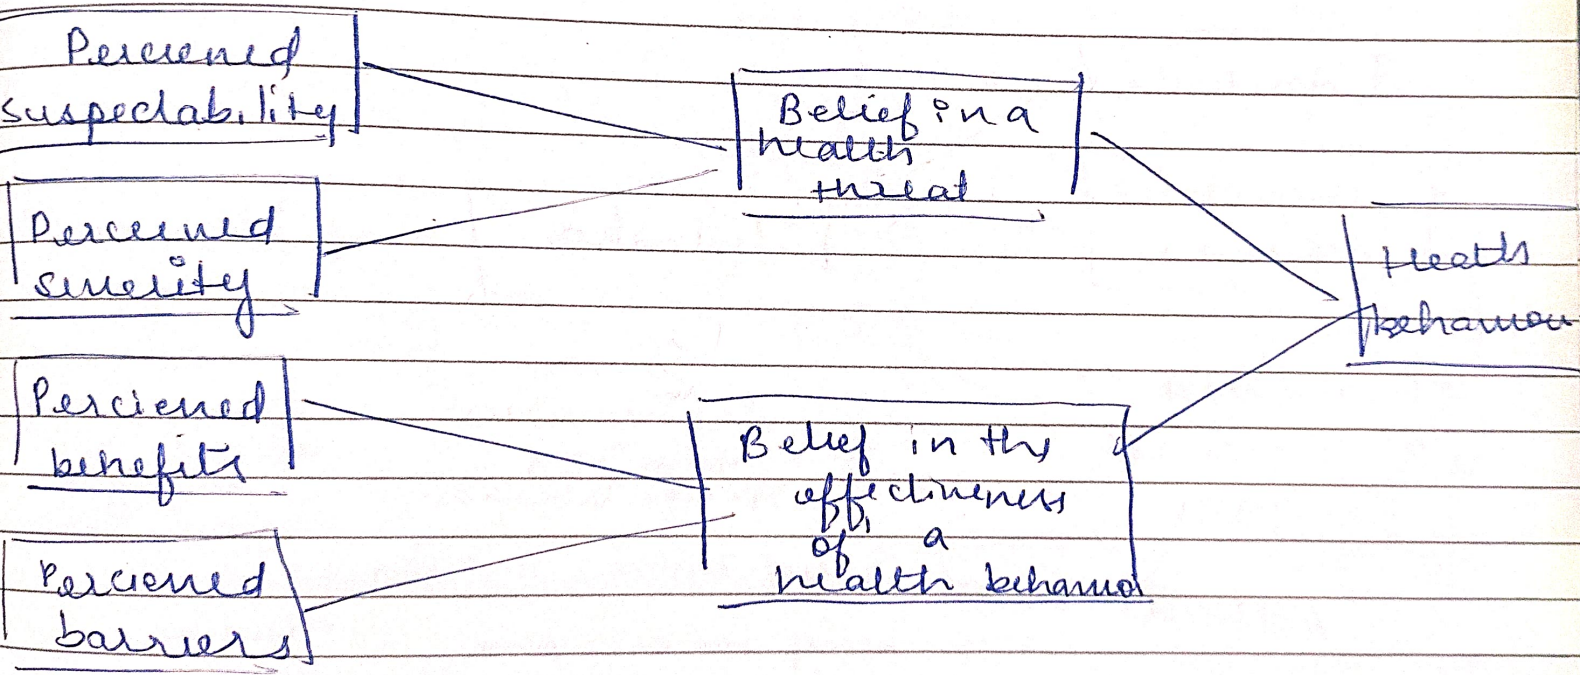 Percieved
suspectability
Percieved
severity
Percieved
benefits
Percieved
barriers
Belief in a
health
threat
Belief in the
effectiveness
of a
health behavior
Health
behaviou